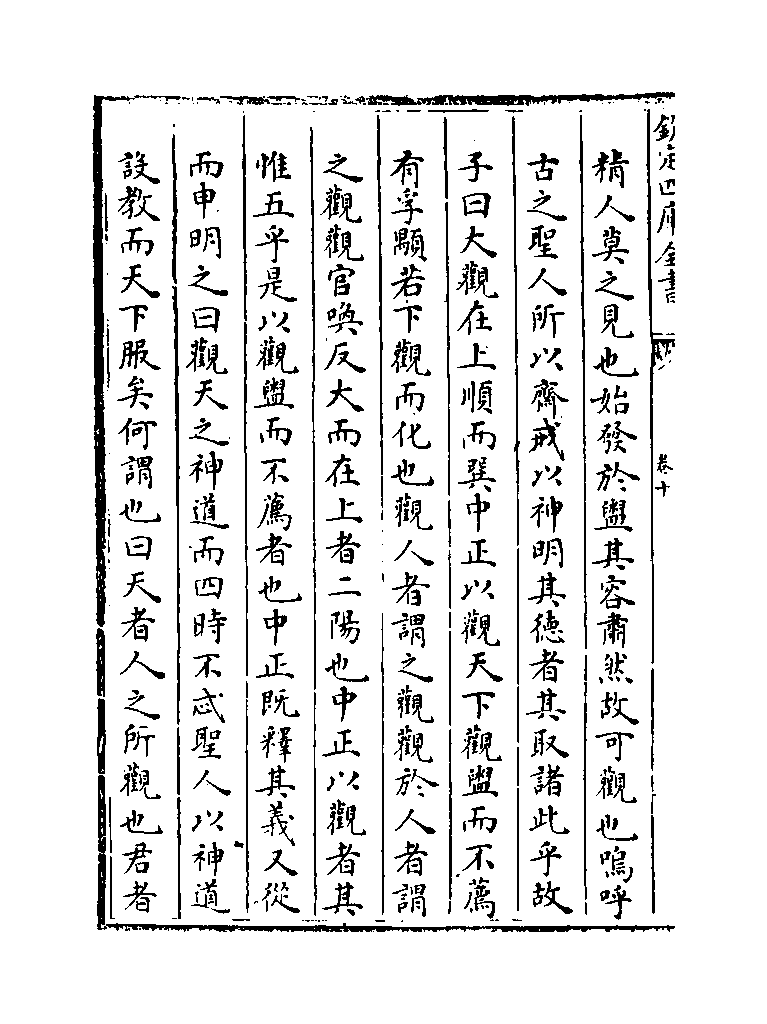 欽定四庫全書
卷十
精人莫之見也始發於盥其容肅然故可觀也嗚呼
古之聖人所以齋戒以神明其德者其取諸此乎故
子曰大觀在上順而巽中正以觀天下觀盥而不薦
有孚顒若下觀而化也觀人者謂之觀觀於人者謂
之觀觀官喚反大而在上者二陽也中正以觀者其
惟五乎是以觀盥而不薦者也中正既釋其義又從
而申明之曰觀天之神道而四時不忒聖人以神道
設教而天下服矣何謂也曰天者人之所觀也君者